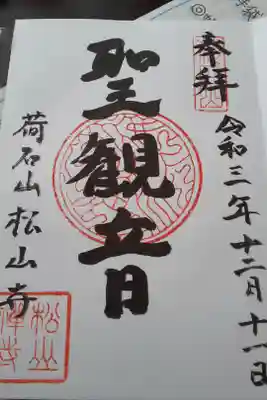 奉拝
令和三年十二月十一日
聖観音
荷石山松山寺
松山
禪寺